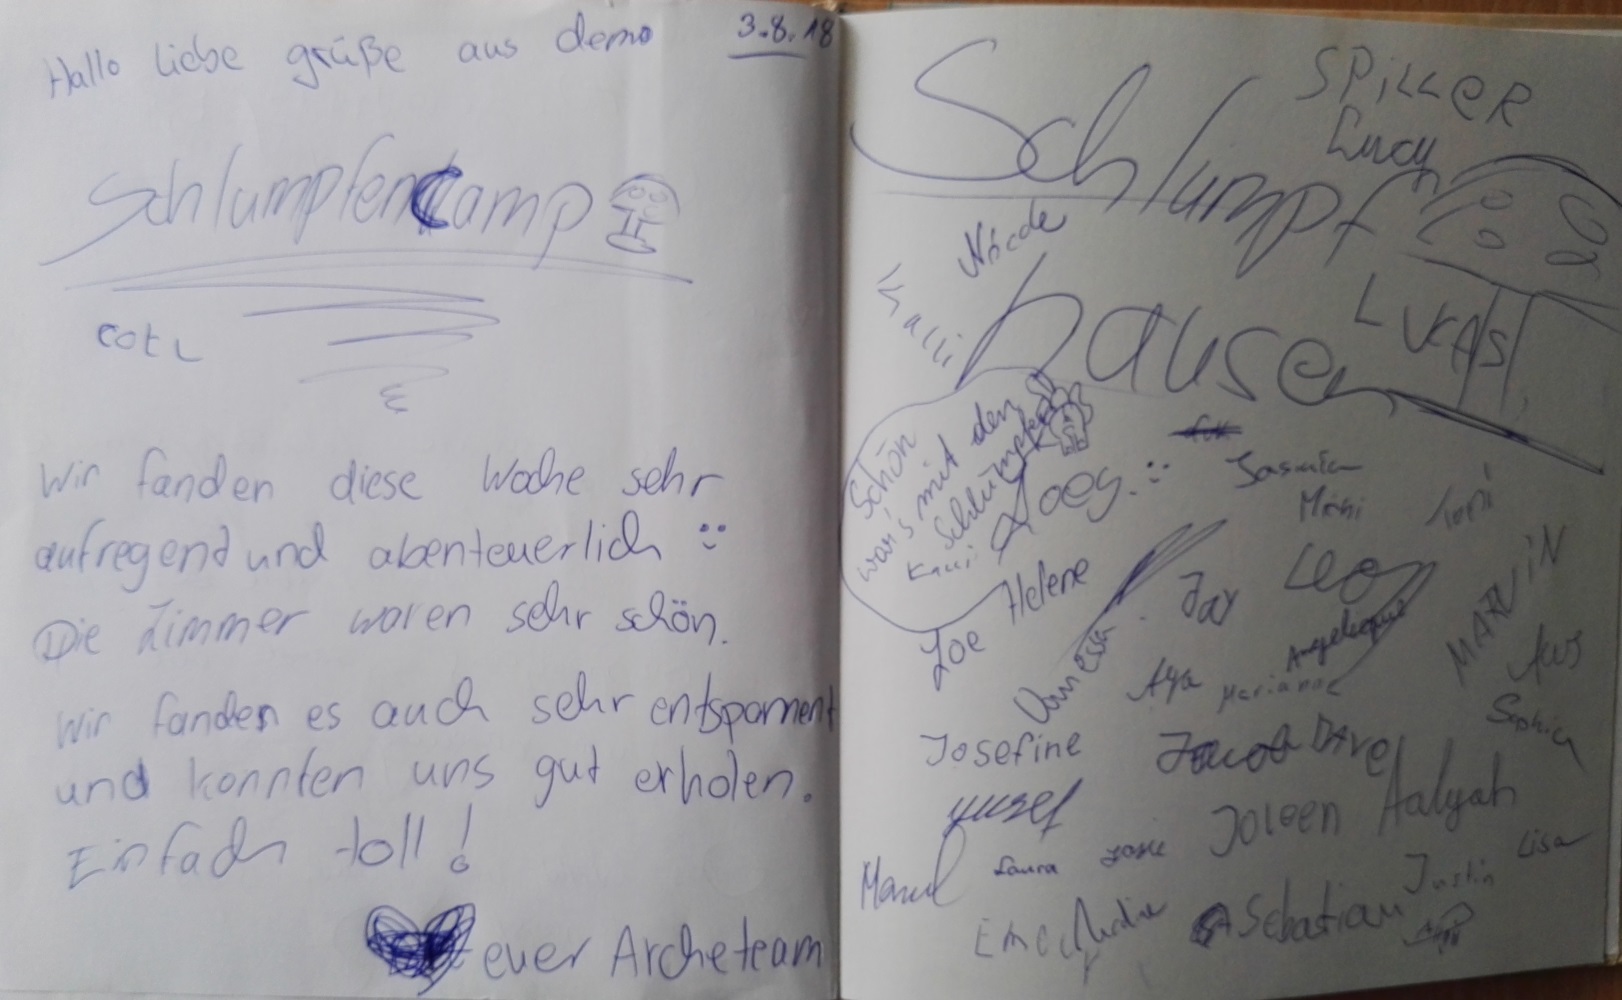 Hallo liebe grüße aus demo 3.8.18
SchlumpfenCamp
Wir fanden diese Woche sehr
aufregend und abenteuerlich :)
Die Zimmer waren sehr schön.
Wir fanden es auch sehr entspannent
und konnten uns gut erholen.
Einfach toll!
euer Archeteam
SPiLLeR
Lucy
Schlumpf
hausen
LUKAS
Schön
war's mit den
Schlümpfen
Jasmin
Michi
Helene
Zoe
Vanessa
Jay
Leo
Angelique
MARViN
Aya
Marianne
Sophia
Josefine
Jacob
Dave
yusef
Joleen
Aalyah
Laura
Josie
Lisa
Justin
Sebastian